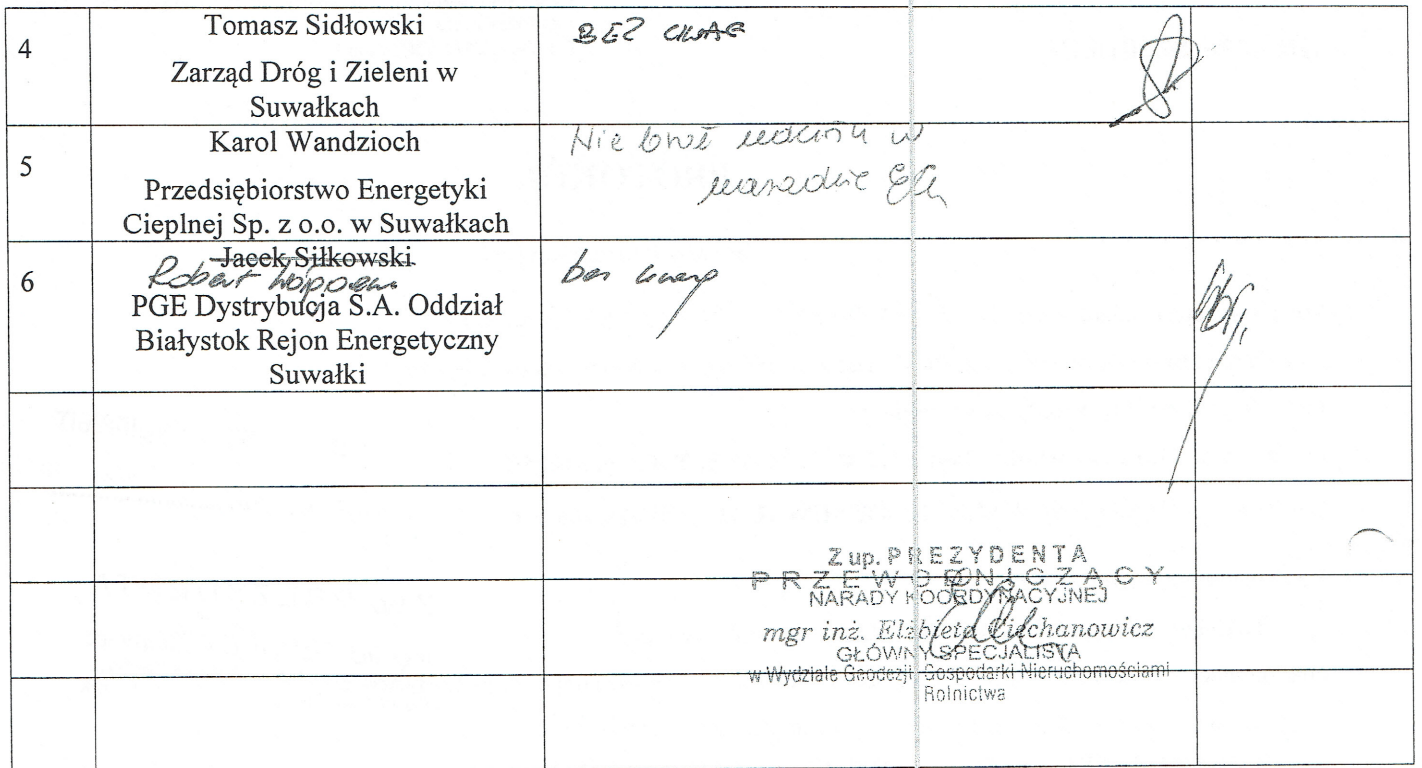 4
Tomasz Sidłowski
Zarząd Dróg i Zieleni w
Suwałkach
BEZ UWAG
5
Karol Wandzioch
Przedsiębiorstwo Energetyki
Cieplnej Sp. z o.o. w Suwałkach
Nie brał udziału w
naradzie
6
Jacek Siłkowski
Robert
PGE Dystrybucja S.A. Oddział
Białystok Rejon Energetyczny
Suwałki
bez uwag
Z up. PREZYDENTA
PRZEWODNICZĄCY
NARADY KOORDYNACYJNEJ
mgr inż. Elżbieta Ciechanowicz
GŁÓWNY SPECJALISTA
w Wydziale Geodezji Gospodarki Nieruchomościami
Rolnictwa